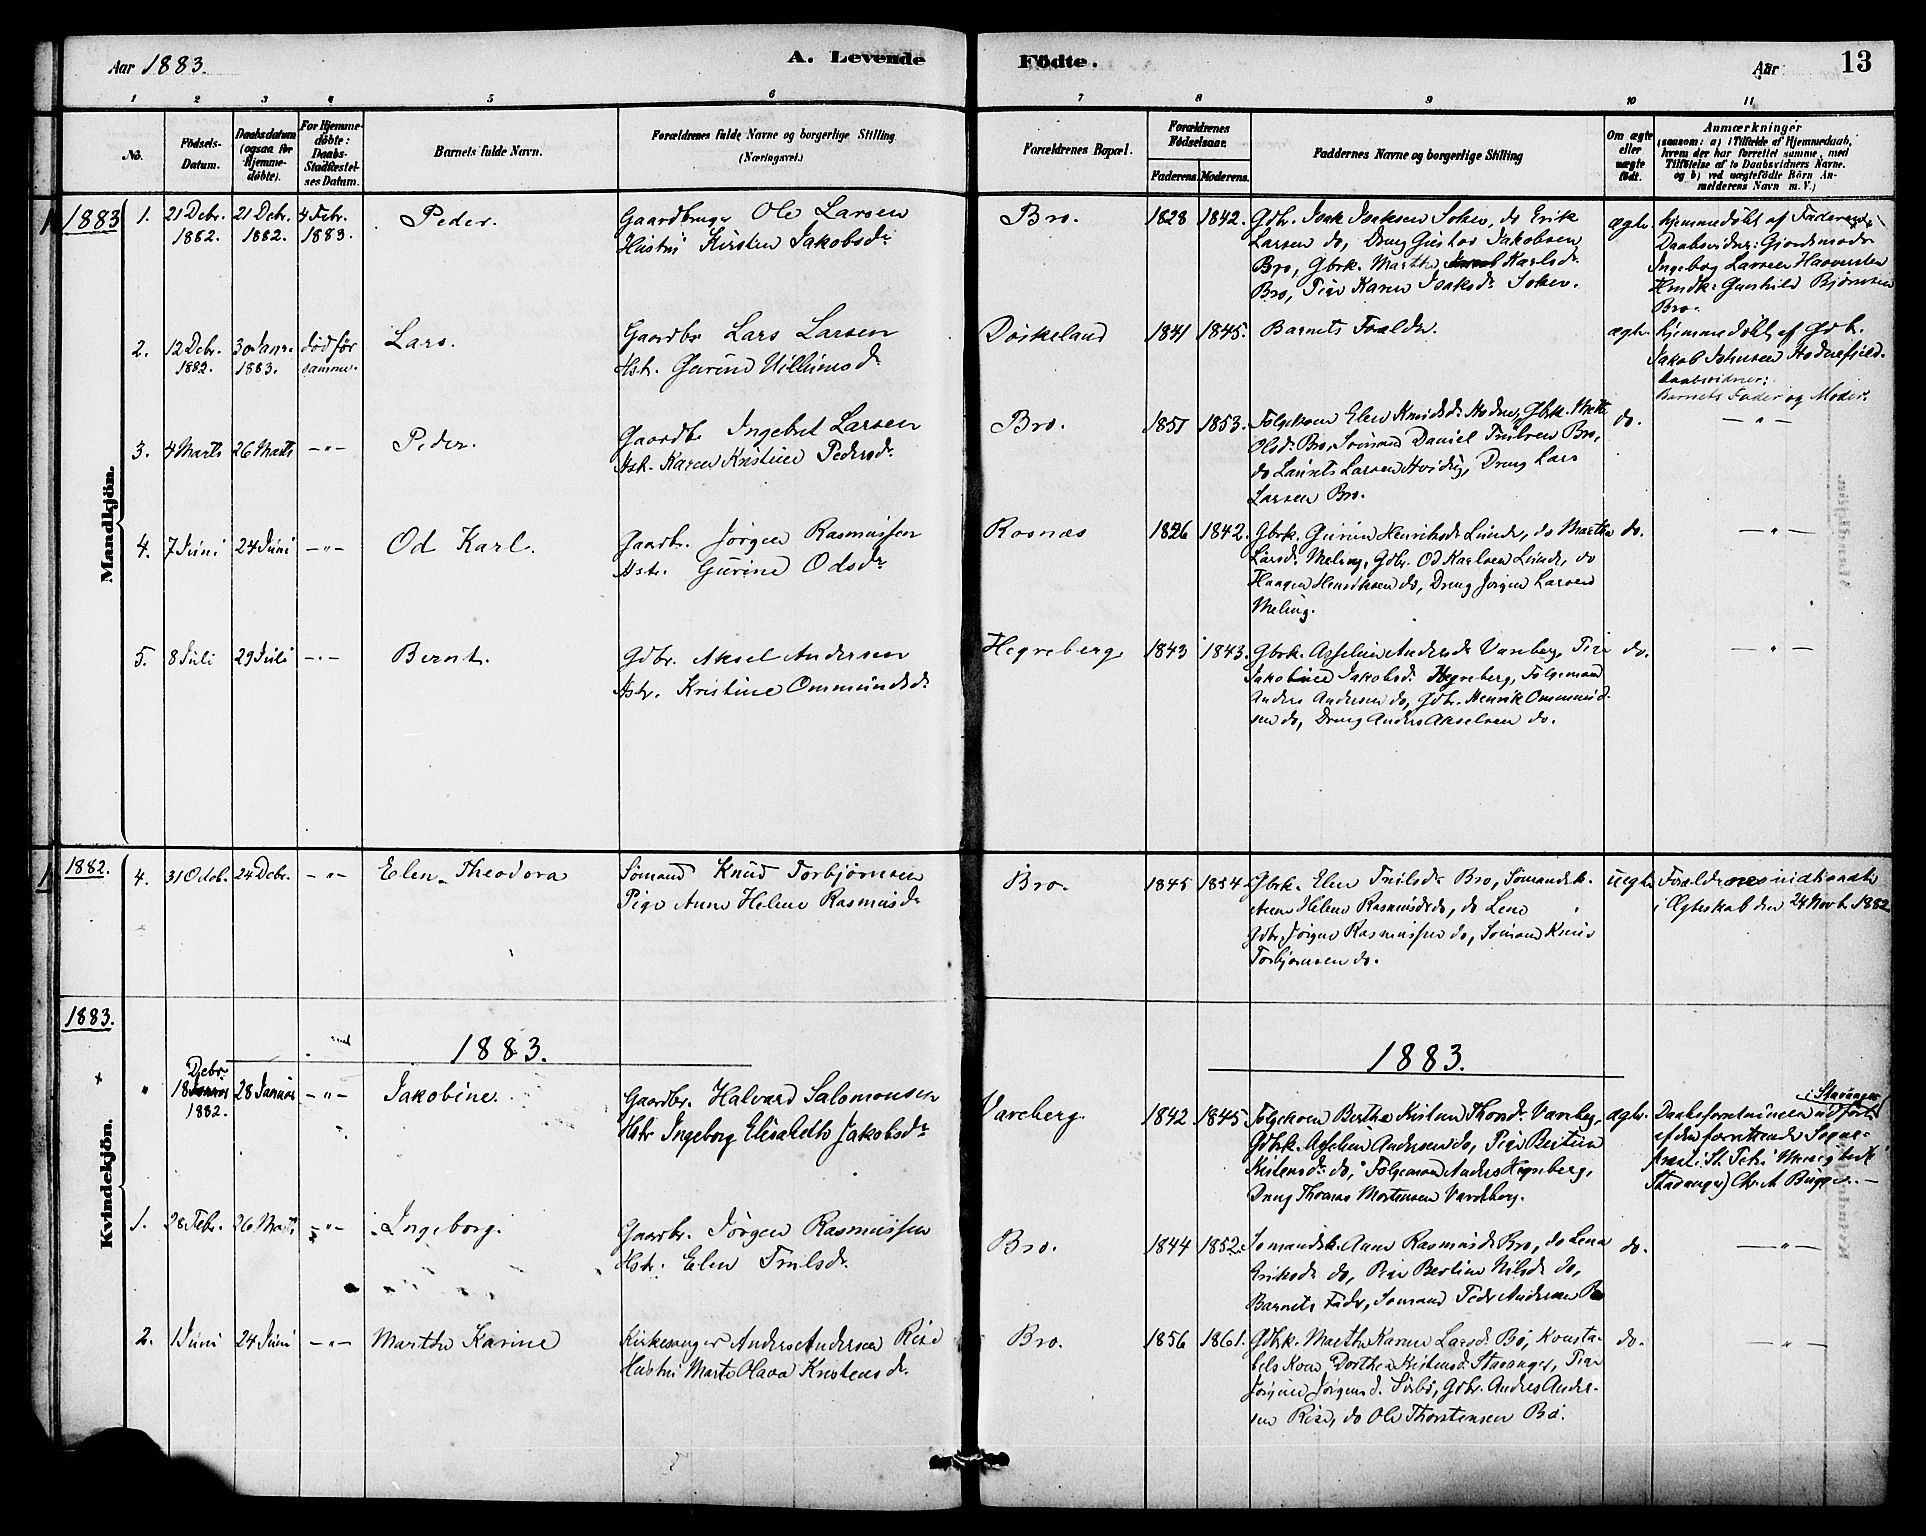 Aar 1883.
A. Levende
Födte.
Aar
13
1
2
3
4
5
6
7
8
9
10
11
No.
Födsels-
Datum.
Daabsdatum
(ogsaa for
Hjemme-
döbte).
For Hjemme-
döbte:
Daabs-
Stadfæstel-
ses Datum.
Barnets fulde Navn.
Forældrenes fulde Navne og borgerlige Stilling
(Næringsvei.)
Forældrenes Bopæl.
Forældrenes
Födselsaar.
Faderens.
Moderens.
Faddernes Navne og borgerlige Stilling
Om ægte
eller
uægte
födt.
Anmærkninger
(saasom: a) i Tilfælde af Hjemmedaab,
hvem der har forrettet samme, med
Tilföielse af to Daabsvidners Navne.
og b) ved uægtefödte Börn An-
melderens Navn m. V.)
Mandkjön.
1883
1.
21 Debr.
1882.
21 Debr.
1882.
4 Febr.
1883.
Peder.
Gaardbruger Ole Larsen
Hustru Kirsten Jakobsdr
Bro.
1828
1842.
Gbr. Isak Isaksen Soken, do Erik
Larsen do, Dreng Gustav Jakobsen
Bro, Gbrk. Marthe Karlsdr.
Bro, Pige Karen Isaksdr. Soken.
ægte.
hjemmedøbt af Faderen
Daabsvidner: Gjordemoder
Ingeborg Larsen
Gunhild Bjørnsen
Bro.
2.
12 Debr.
1882.
30 Janr.
1883.
død før
samme.
Lars.
Gaardbr Lars Larsen
Hstr. Gurine Villumsdr
Døskeland
1841
1845.
Barnets Forældre.
ægte.
hjemmedøbt af Gdbr.
Jakob Johnsen Hodnefjeld.
Daabsvidner:
Barnets Fader og Moder.
3.
4 Marts
26 Marts
— " —
Peder.
Gaardbr Ingebret Larsen
Hstr. Karen Kristine Pedersdr.
Bro.
1851
1853.
Følgekone Elen Knudsdr. Hodne, Gbrk. Mette
Olsdr. Bro, Sømand Daniel Truelsen Bro,
do Laurits Larsen Hviding, Dreng Lars
Larsen Bro.
do.
— " —
4.
7 Juni
24 Juni
— " —
Od Karl.
Gaardbr. Jørgen Rasmussen
Hstr. Gurine Odsdr
Rosnæs
1826
1842.
Gbrk. Gurine Henriksdr Lunde, do Martha
Larsdr. Meling, Gdbr. Od Karlsen Lunde, do
Haagen Henriksen do, Dreng Jørgen Larsen
Meling.
do.
— " —
5.
8 Juli
29 Juli
— " —
Bernt.
Gdbr. Aksel Andersen
Hstr. Kristine Ommundsdr.
Hegreberg
1843
1843.
Gbrk. Asseline Andersdr Vareberg, Pige
Jakobine Jakobsdr. Hegreberg, Følgemand
Anders Andersen do, Gdbr. Henrik Ommund-
sen do, Dreng Anders Akselsen do.
do.
— " —
Kvindekjön.
1882.
4.
31 Octob.
24 Debr.
— " —
Elen Theodora
Sømand Knud Torbjørnsen
Pige Anne Helene Rasmusdr
Bro.
1845
1854.
Gbrk. Elen Truelsdr Bro, Sømandsk.
Anne Helene Rasmusdr do, do Lene
Gdbr. Jørgen Rasmussen do, Sømand Knud
Torbjørnsen do.
uegte
Forældrene indtraadte
i Ægteskab den 24 Novb. 1882
1883.
1883.
1883.
"
Debr.
18 Januar
1882.
28 Januar
— " —
Jakobine.
Gaardbr. Halvard Salomonsen
Hstr Ingeborg Elisabeth Jakobsdr
Vareberg.
1842
1845
Følgekone Bertha Kristine Thorsdr. Vareberg,
Gdbrk. Asseline Andersen do, Pige Bertine
Kristensdr. do, Følgemand Anders Hegreberg,
Dreng Thomas Mortensen Vareberg.
ægte.
i Stavanger
Daabsforretningen udført
af den forrettende Sogne-
præst i St. Petri Menighed
Stavanger, Chr. A Bugge.
1.
28 Febr.
26 Marts
— " —
Ingeborg.
Gaardbr. Jørgen Rasmussen
Hstr. Elen Truelsdr.
Bro.
1844
1852.
Sømandsk. Anne Rasmusdr Bro, do Lena
Eriksdr do, Pige Bertine Nilsdr do,
Barnets Fader, Sømand Peder Andersen Bro
do.
— " —
2.
1 Juni
24 Juni
— " —
Marthe Karine
Kirkesanger Anders Andersen Rise
Hustru Marte Olava Kristensdr.
Bro.
1856
1861.
Gdbk. Marthe Karine Larsdr. Bø, Konsta-
bels Kone Dorthea Kristensdr. Stavanger, Pige
Jørgine Jørgensd. Sørbø, Gdbr. Anders Ander-
sen Rise, do Ole Thorstensen Bø.
do.
— " —